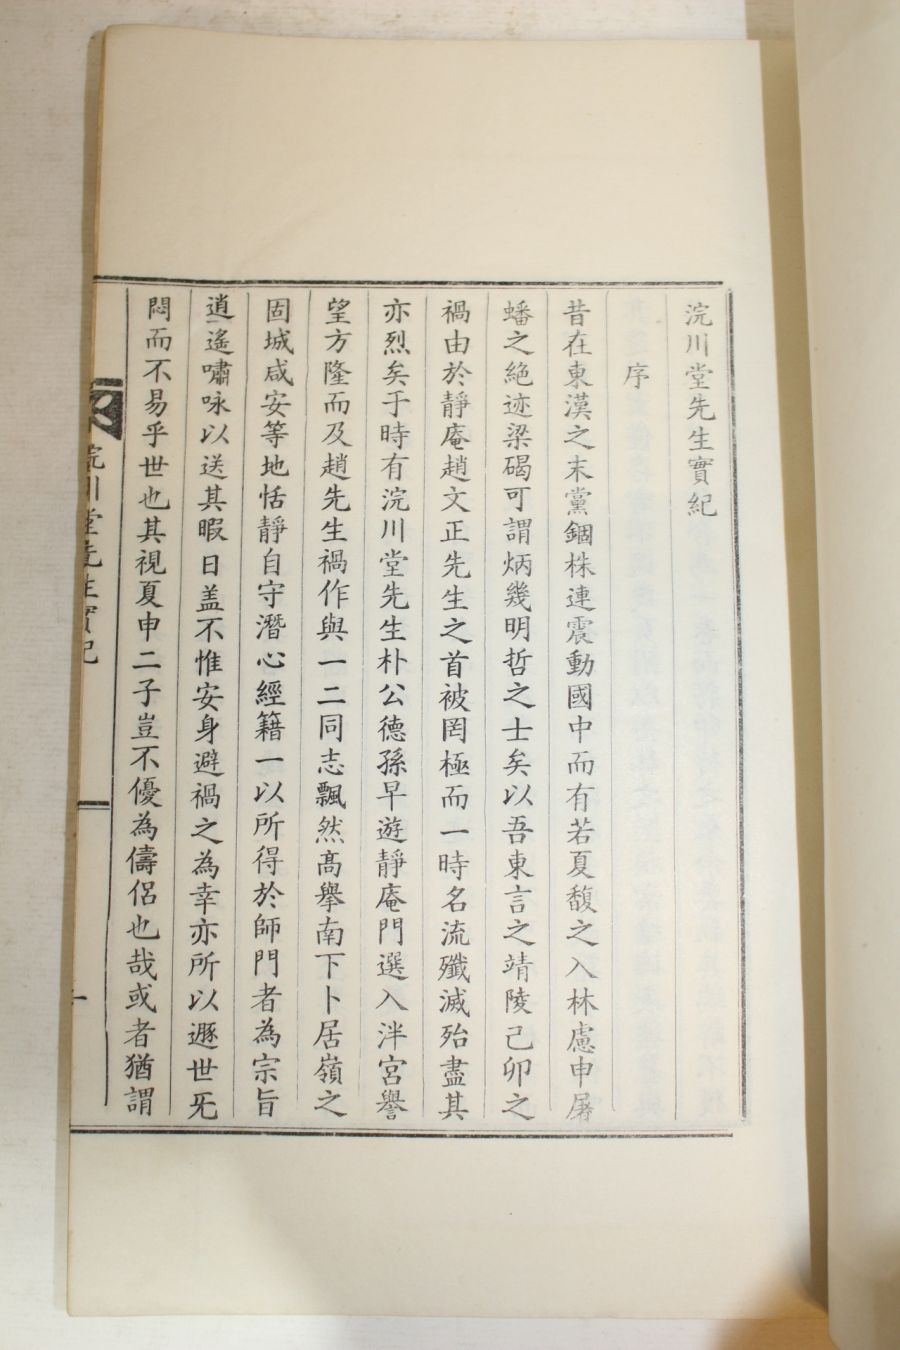 浣川堂先生實紀
序
昔在東漢之末黨錮株連震動國中而有若夏馥之入林慮申屠
蟠之絶迹梁碭可謂炳幾明哲之士矣以吾東言之靖陵己卯之
禍由於靜庵趙文正先生之首被罔極而一時名流殲滅殆盡其
亦烈矣于時有浣川堂先生朴公德孫早遊靜庵門選入泮宮譽
望方隆而及趙先生禍作與一二同志飄然高擧南下卜居嶺之
固城咸安等地恬靜自守潛心經籍一以所得於師門者為宗旨
逍遙嘯咏以送其暇日盖不惟安身避禍之為幸亦所以遯世旡
悶而不易乎世也其視夏申二子豈不優為儔侶也哉或者猶謂
浣川堂先生實紀